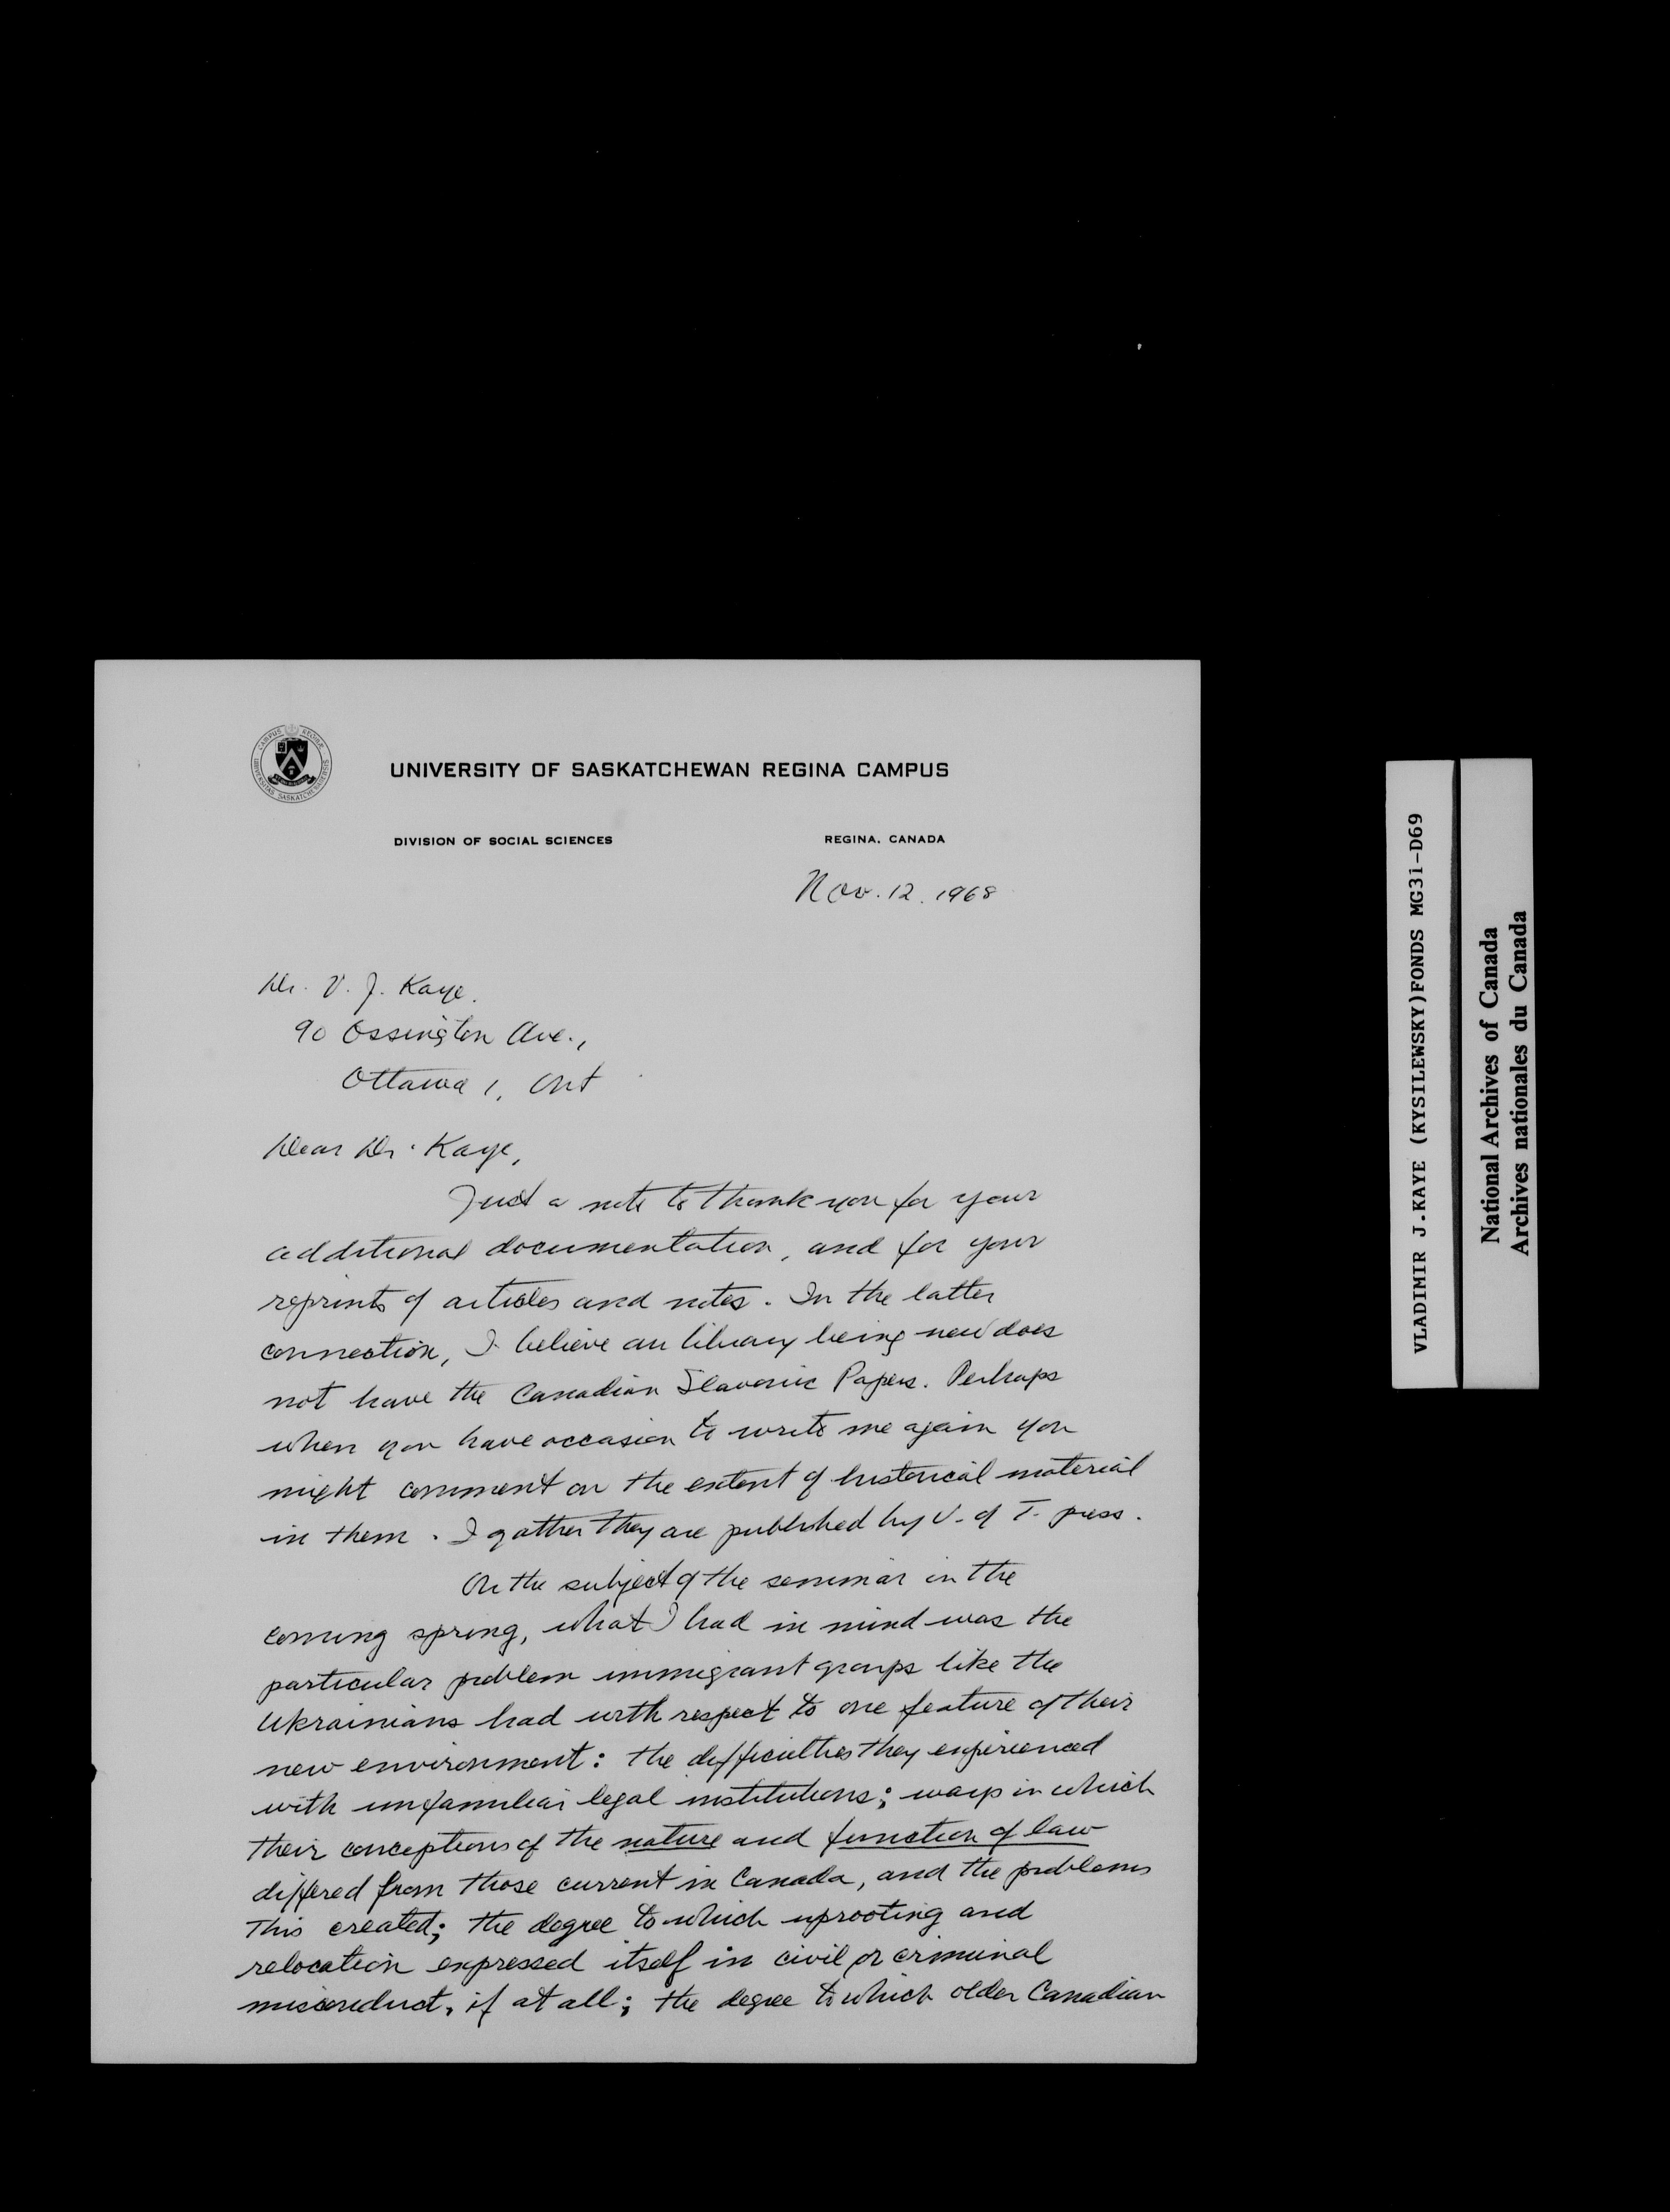 UNIVERSITY OF SASKATCHEWAN REGINA CAMPUS
DIVISION OF SOCIAL SCIENCES
REGINA, CANADA
Nov. 12. 1968
Dr. V. J. Kaye.
90 Ossington Ave.,
Ottawa 1, Ont
Dear Dr. Kaye,
Just a note to thank you for your
additional documentation, and for your
reprints of articles and notes. In the latter
connection, I believe our library being new does
not have the Canadian Slavonic Papers. Perhaps
when you have occasion to write me again you
might comment on the extent of historical material
in them. I gather they are published by U. of T. press.
On the subject of the seminar in the
coming spring, what I had in mind was the
particular problem immigrant groups like the
Ukrainians had with respect to one feature of their
new environment: the difficulties they experienced
with unfamiliar legal institutions; ways in which
their conceptions of the nature and function of law
differed from those current in Canada, and the problems
this created; the degree to which uprooting and
relocation expressed itself in civil or criminal
misconduct, if at all; the degree to which older Canadian
VLADIMIR J.KAYE (KYSILEWSKY)FONDS MG31-D69
National Archives of Canada
Archives nationales du Canada